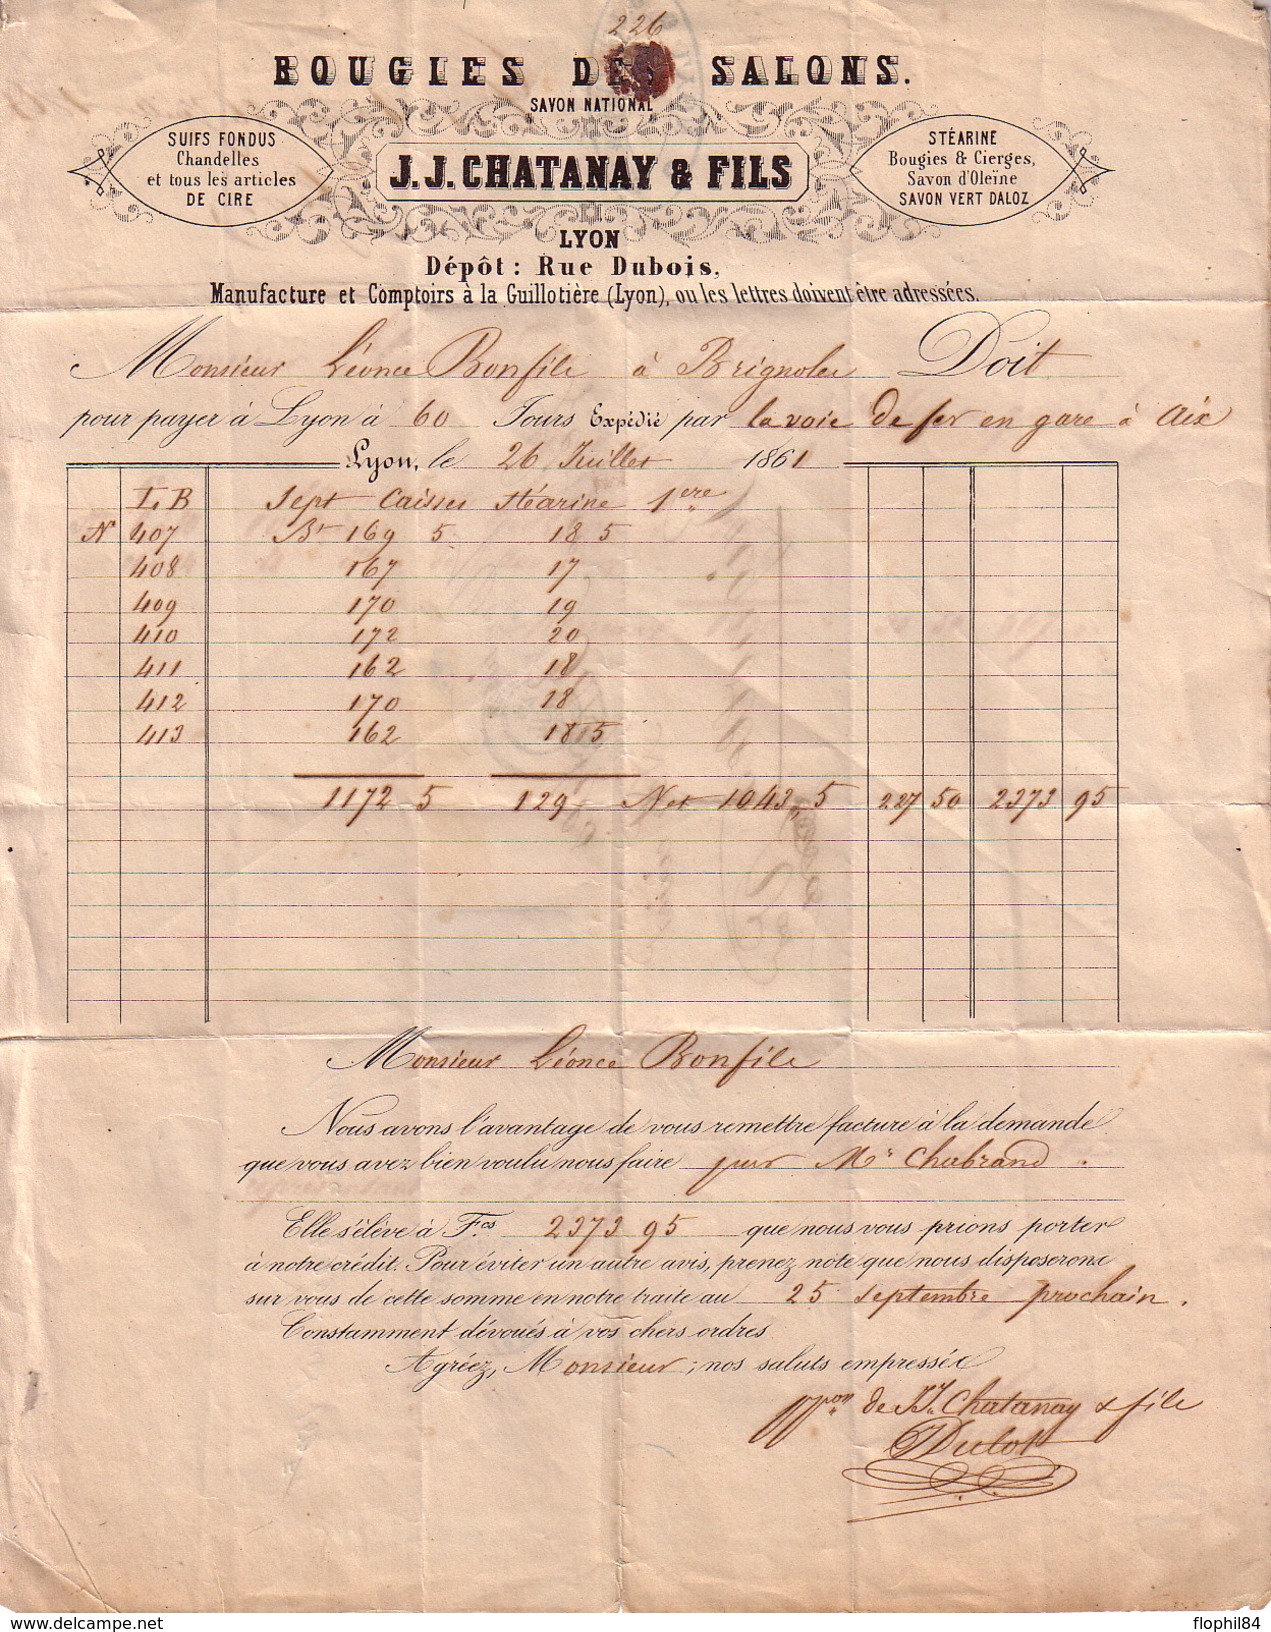 226
BOUGIES DES SALONS.
SAVON NATIONAL
SUIFS FONDUS
Chandelles
et tous les articles
DE CIRE
J. J. CHATANAY & FILS
STÉARINE
Bougies & Cierges,
Savon d'Oleïne
SAVON VERT DALOZ
LYON
Dépôt : Rue Dubois,
Manufacture et Comptoirs à la Guillotière (Lyon), ou les lettres doivent être adressées.
Monsieur Léonce Bonfils à Brignoles Doit
pour payer à Lyon à 60 Jours Expédié par la voie de fer en gare à Aix
Lyon, le 26 Juillet 1861
L B Sept Caisses Stéarine 1ere
N 407 Bt 169 5 18 5
408 167 17
409 170 19
410 172 20
411 162 18
412 170 18
413 162 18 5
1172 5 129 Net 1043, 5 227 50 2373 95
Monsieur Léonce Bonfils
Nous avons l'avantage de vous remettre facture à la demande
que vous avez bien voulu nous faire par Mr Chabrand.
Elle s'élève à Fcs 2373 95 que nous vous prions porter
à notre crédit. Pour éviter un autre avis, prenez note que nous disposerons
sur vous de cette somme en notre traite au 25 septembre prochain.
Constamment dévoués à vos chers ordres
Agréez, Monsieur, nos saluts empressés
ppon de J. J. Chatanay & fils
Dulot
flophil84